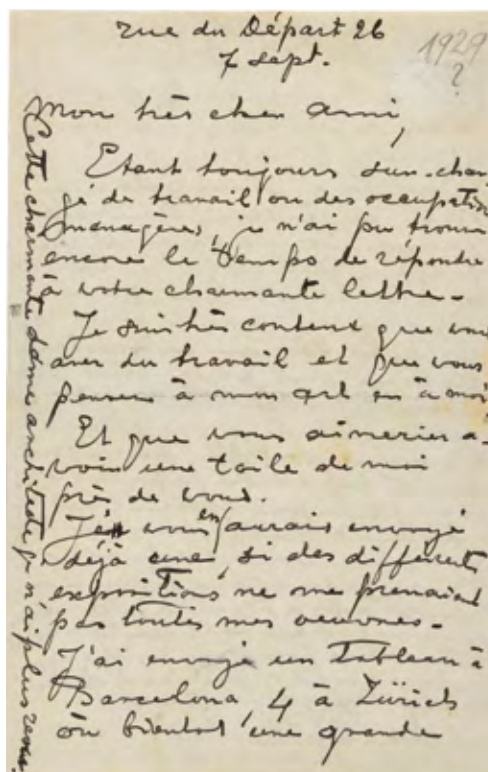 rue du Départ 26
7 sept.
1929
?
Mon très cher Ami,
Etant toujours sur-char
gé de travail ou des occupation
menagères, je n'ai pu trouve
encore le temps de répondre
à votre charmante lettre.
Je suis très content que vous
avez du travail et que vous
pensez à mon art en à moi
Et que vous aimeriez a-
voir une toile de moi
près de vous.
Je vous en aurais envoyé
déjà une, si des differents
expositions ne me prenaient
pas toutes mes oeuvres.
J'ai envoyé un tableau à
Barcelona, 4 à Zürich
ou bientot une grande
Cette charmante dame architecte je n'ai plus revue.